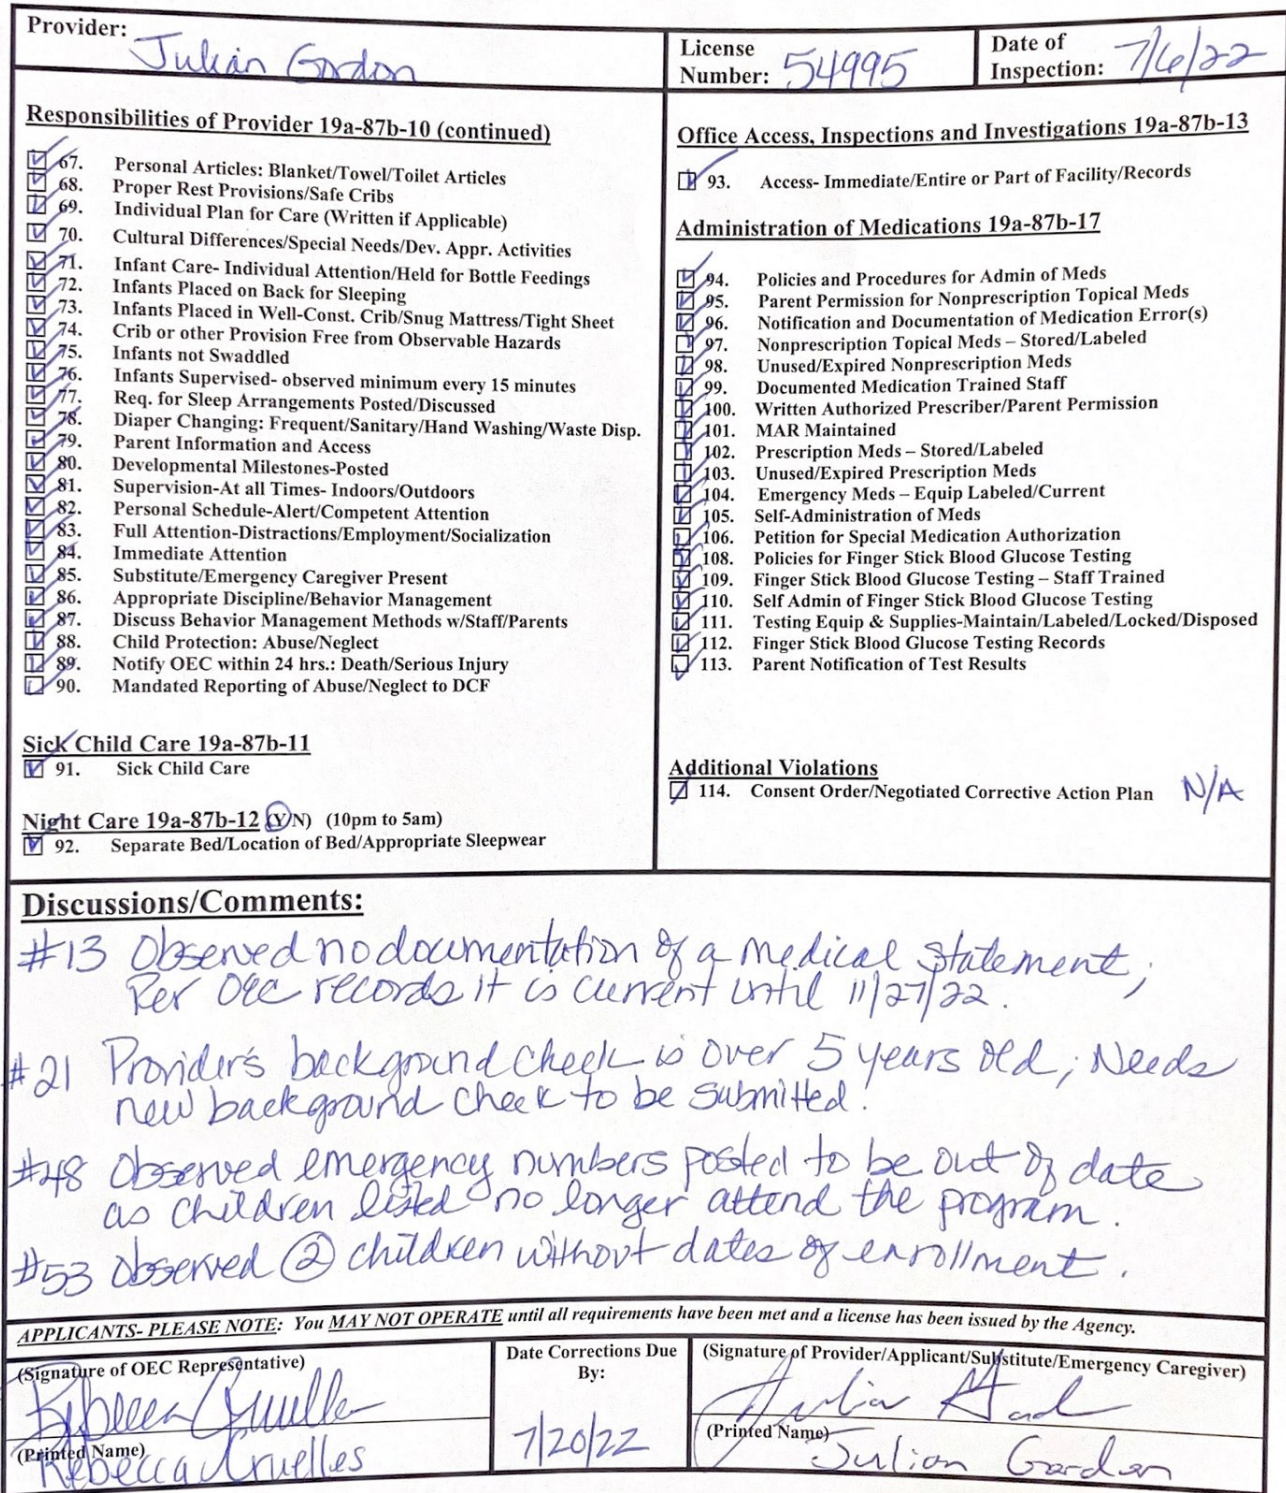 Provider: Julian Gordon
License Number: 54995
Date of Inspection: 7/6/22
Responsibilities of Provider 19a-87b-10 (continued)
67. Personal Articles: Blanket/Towel/Toilet Articles
68. Proper Rest Provisions/Safe Cribs
69. Individual Plan for Care (Written if Applicable)
70. Cultural Differences/Special Needs/Dev. Appr. Activities
71. Infant Care- Individual Attention/Held for Bottle Feedings
72. Infants Placed on Back for Sleeping
73. Infants Placed in Well-Const. Crib/Snug Mattress/Tight Sheet
74. Crib or other Provision Free from Observable Hazards
75. Infants not Swaddled
76. Infants Supervised- observed minimum every 15 minutes
77. Req. for Sleep Arrangements Posted/Discussed
78. Diaper Changing: Frequent/Sanitary/Hand Washing/Waste Disp.
79. Parent Information and Access
80. Developmental Milestones-Posted
81. Supervision-At all Times- Indoors/Outdoors
82. Personal Schedule-Alert/Competent Attention
83. Full Attention-Distractions/Employment/Socialization
84. Immediate Attention
85. Substitute/Emergency Caregiver Present
86. Appropriate Discipline/Behavior Management
87. Discuss Behavior Management Methods w/Staff/Parents
88. Child Protection: Abuse/Neglect
89. Notify OEC within 24 hrs.: Death/Serious Injury
90. Mandated Reporting of Abuse/Neglect to DCF
Sick Child Care 19a-87b-11
91. Sick Child Care
Night Care 19a-87b-12 (Y/N) (10pm to 5am)
92. Separate Bed/Location of Bed/Appropriate Sleepwear
Office Access, Inspections and Investigations 19a-87b-13
93. Access- Immediate/Entire or Part of Facility/Records
Administration of Medications 19a-87b-17
94. Policies and Procedures for Admin of Meds
95. Parent Permission for Nonprescription Topical Meds
96. Notification and Documentation of Medication Error(s)
97. Nonprescription Topical Meds – Stored/Labeled
98. Unused/Expired Nonprescription Meds
99. Documented Medication Trained Staff
100. Written Authorized Prescriber/Parent Permission
101. MAR Maintained
102. Prescription Meds – Stored/Labeled
103. Unused/Expired Prescription Meds
104. Emergency Meds – Equip Labeled/Current
105. Self-Administration of Meds
106. Petition for Special Medication Authorization
108. Policies for Finger Stick Blood Glucose Testing
109. Finger Stick Blood Glucose Testing – Staff Trained
110. Self Admin of Finger Stick Blood Glucose Testing
111. Testing Equip & Supplies-Maintain/Labeled/Locked/Disposed
112. Finger Stick Blood Glucose Testing Records
113. Parent Notification of Test Results
Additional Violations
114. Consent Order/Negotiated Corrective Action Plan N/A
Discussions/Comments:
#13 Observed no documentation of a medical statement;
Per OEC records it is current until 11/27/22.
#21 Provider's background check is over 5 years old; Needs
new background check to be submitted.
#48 Observed emergency numbers posted to be out of date
as children listed no longer attend the program.
#53 Observed 2 children without dates of enrollment.
APPLICANTS- PLEASE NOTE: You MAY NOT OPERATE until all requirements have been met and a license has been issued by the Agency.
(Signature of OEC Representative)
Rebecca Cruelles
(Printed Name)
Rebecca Cruelles
Date Corrections Due
By:
7/20/22
(Signature of Provider/Applicant/Substitute/Emergency Caregiver)
Julian Gordon
(Printed Name)
Julian Gordon